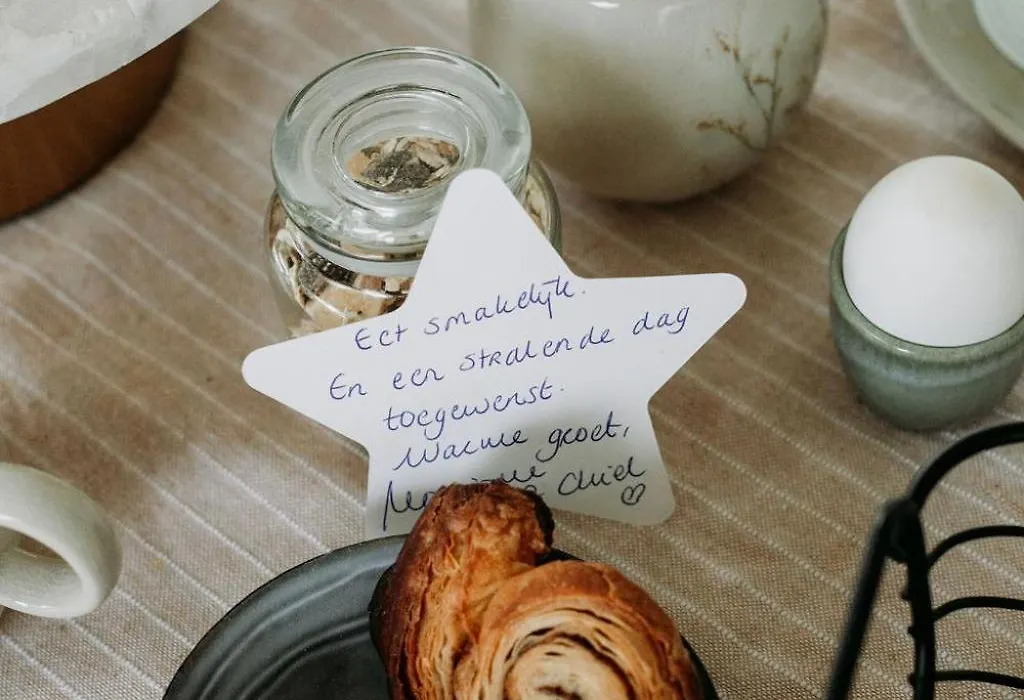 Eet smakelijk.
En een stralende dag
toegewenst.
Warme groet,
Chiel ♡